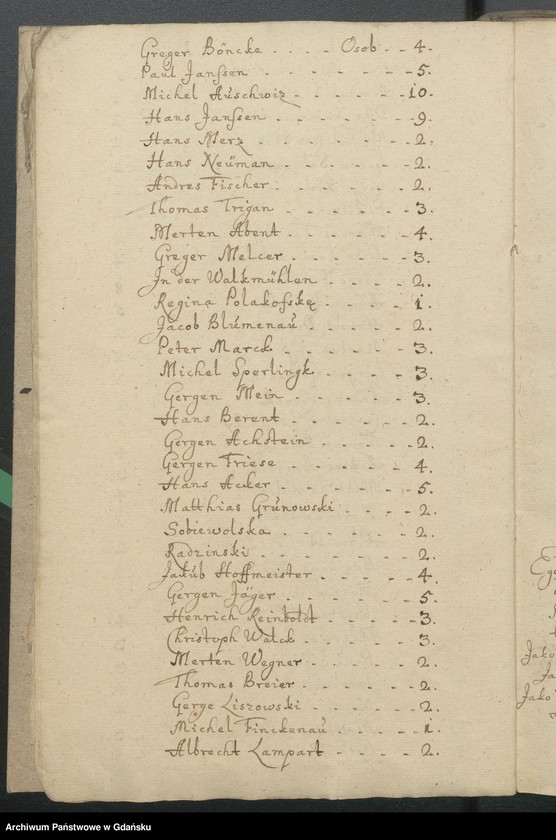 Greger Böncke . . . . Osob . - 4.
Paul Janssen - - - - - - 5.
Michel Auschwiz - - - - - 10.
Hans Janssen - - - - - - 9.
Hans Merz - - - - - - - 2.
Hans Neuman - - - - - - 2.
Andres Fischer - - - - - - 2.
Thomas Trigan - - - - - 3.
Merten Abent - - - - - 4.
Greger Melcer - - - - - 3.
In der Walkmühlen - - - - 2.
Regina Polakofskę - - - - 1.
Jacob Blumenau - - - - - 2.
Peter Marck - - - - - - 3.
Michel Sperlingk - - - - 3.
Gergen Mein - - - - - 3.
Hans Berent - - - - - 2.
Gergen Achstein - - - - - 2.
Gergen Friese - - - - - 4.
Hans Acker - - - - - 5.
Matthias Grunowski - - - 2.
Sobiewolska - - - - - - 2.
Radzinski - - - - - - - 2.
Jakub Hoffmeister - - - - 4.
Gergen Jäger - - - - - - 5.
Henrich Reinboldt - - - - - 3.
Christoph Walck - - - - 3.
Merten Wegner - - - - - 2.
Thomas Breier - - - - - 2.
Gerge Liszowski - - - - - 2.
Michel Finckenau - - - - 1.
Albrecht Lampart - - - - 2.
Jako
Ja
Jako
Archiwum Państwowe w Gdańsku